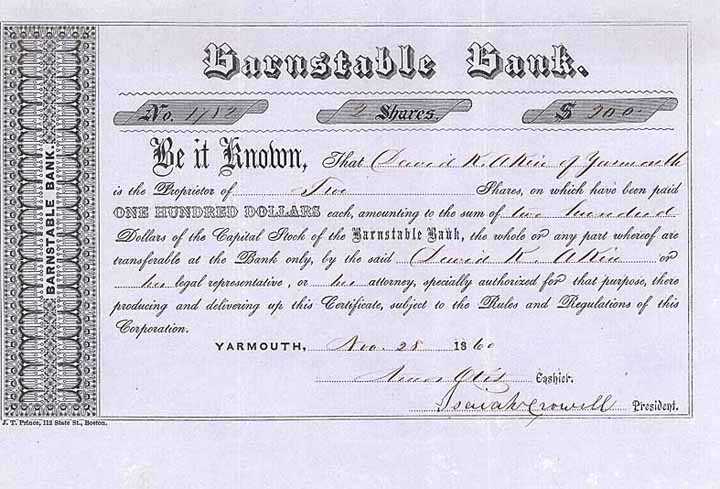 Barnstable Bank.
No. 1,182 2 Shares. $ 200.
Be it Known, That David K. Akin of Yarmouth
is the Proprietor of Two Shares, on which have been paid
ONE HUNDRED DOLLARS each, amounting to the sum of two hundred
Dollars of the Capital Stock of the Barnstable Bank, the whole or any part whereof are
transferable at the Bank only, by the said David K. Akin or
his legal representative, or his attorney, specially authorized for that purpose, there
producing and delivering up this Certificate, subject to the Rules and Regulations of this
Corporation.
YARMOUTH, Nov. 28 1860
Amos Otis Cashier.
Isaiah Crowell President.
BARNSTABLE BANK.
J. T. Prince, 112 State St., Boston.